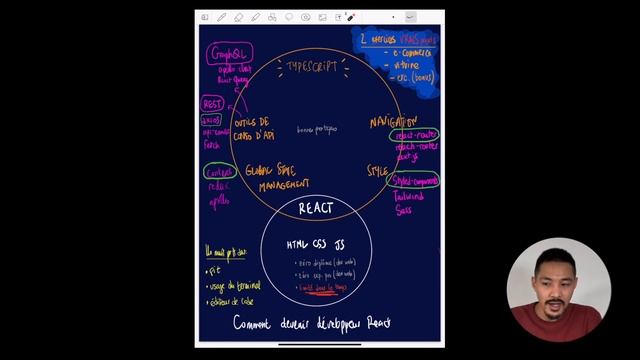 GraphQL
apollo client
React Query
TYPESCRIPT
2 exercices
- e-commerce
- vitrine
- etc. (bonus)
REST
axios
fetch
OUTILS DE
CONSO D'API
bonnes pratiques
NAVIGATION
react-router
reach-router
next.js
context
redux
apollo
GLOBAL STATE
MANAGEMENT
STYLE
Styled-components
Tailwind
Sass
REACT
HTML CSS JS
• zéro diplôme (dev web)
• zéro exp. pro (dev web)
• limité dans le temps
• Git
• usage du terminal
• éditeur de code
Comment devenir développeur React